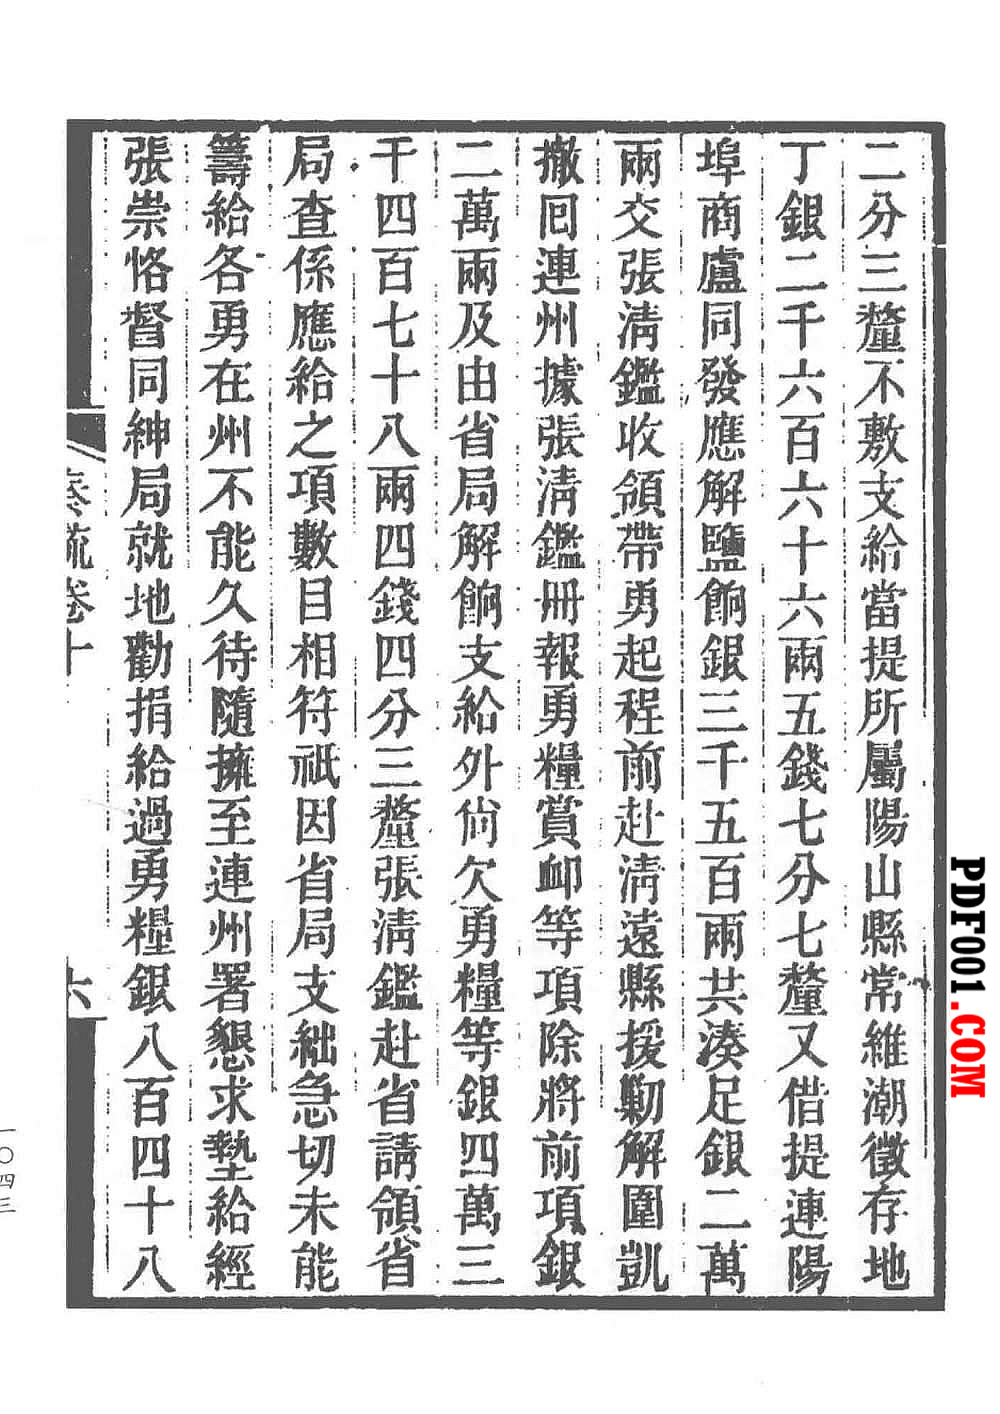 二分三釐不敷支給當提所屬陽山縣常維潮徵存地
丁銀二千六百六十六兩五錢七分七釐又借提連陽
埠商盧同發應解鹽餉銀三千五百兩共湊足銀二萬
兩交張清鑑收領帶勇起程前赴清遠縣援勦解圍凱
撤回連州據張清鑑冊報勇糧賞卹等項除將前項銀
二萬兩及由省局解餉支給外尙欠勇糧等銀四萬三
千四百七十八兩四錢四分三釐張清鑑赴省請領省
局查係應給之項數目相符祇因省局支絀急切未能
籌給各勇在州不能久待隨擁至連州署懇求墊給經
張崇恪督同紳局就地勸捐給過勇糧銀八百四十八
奏疏卷十
六
一〇四三
PDF001.COM